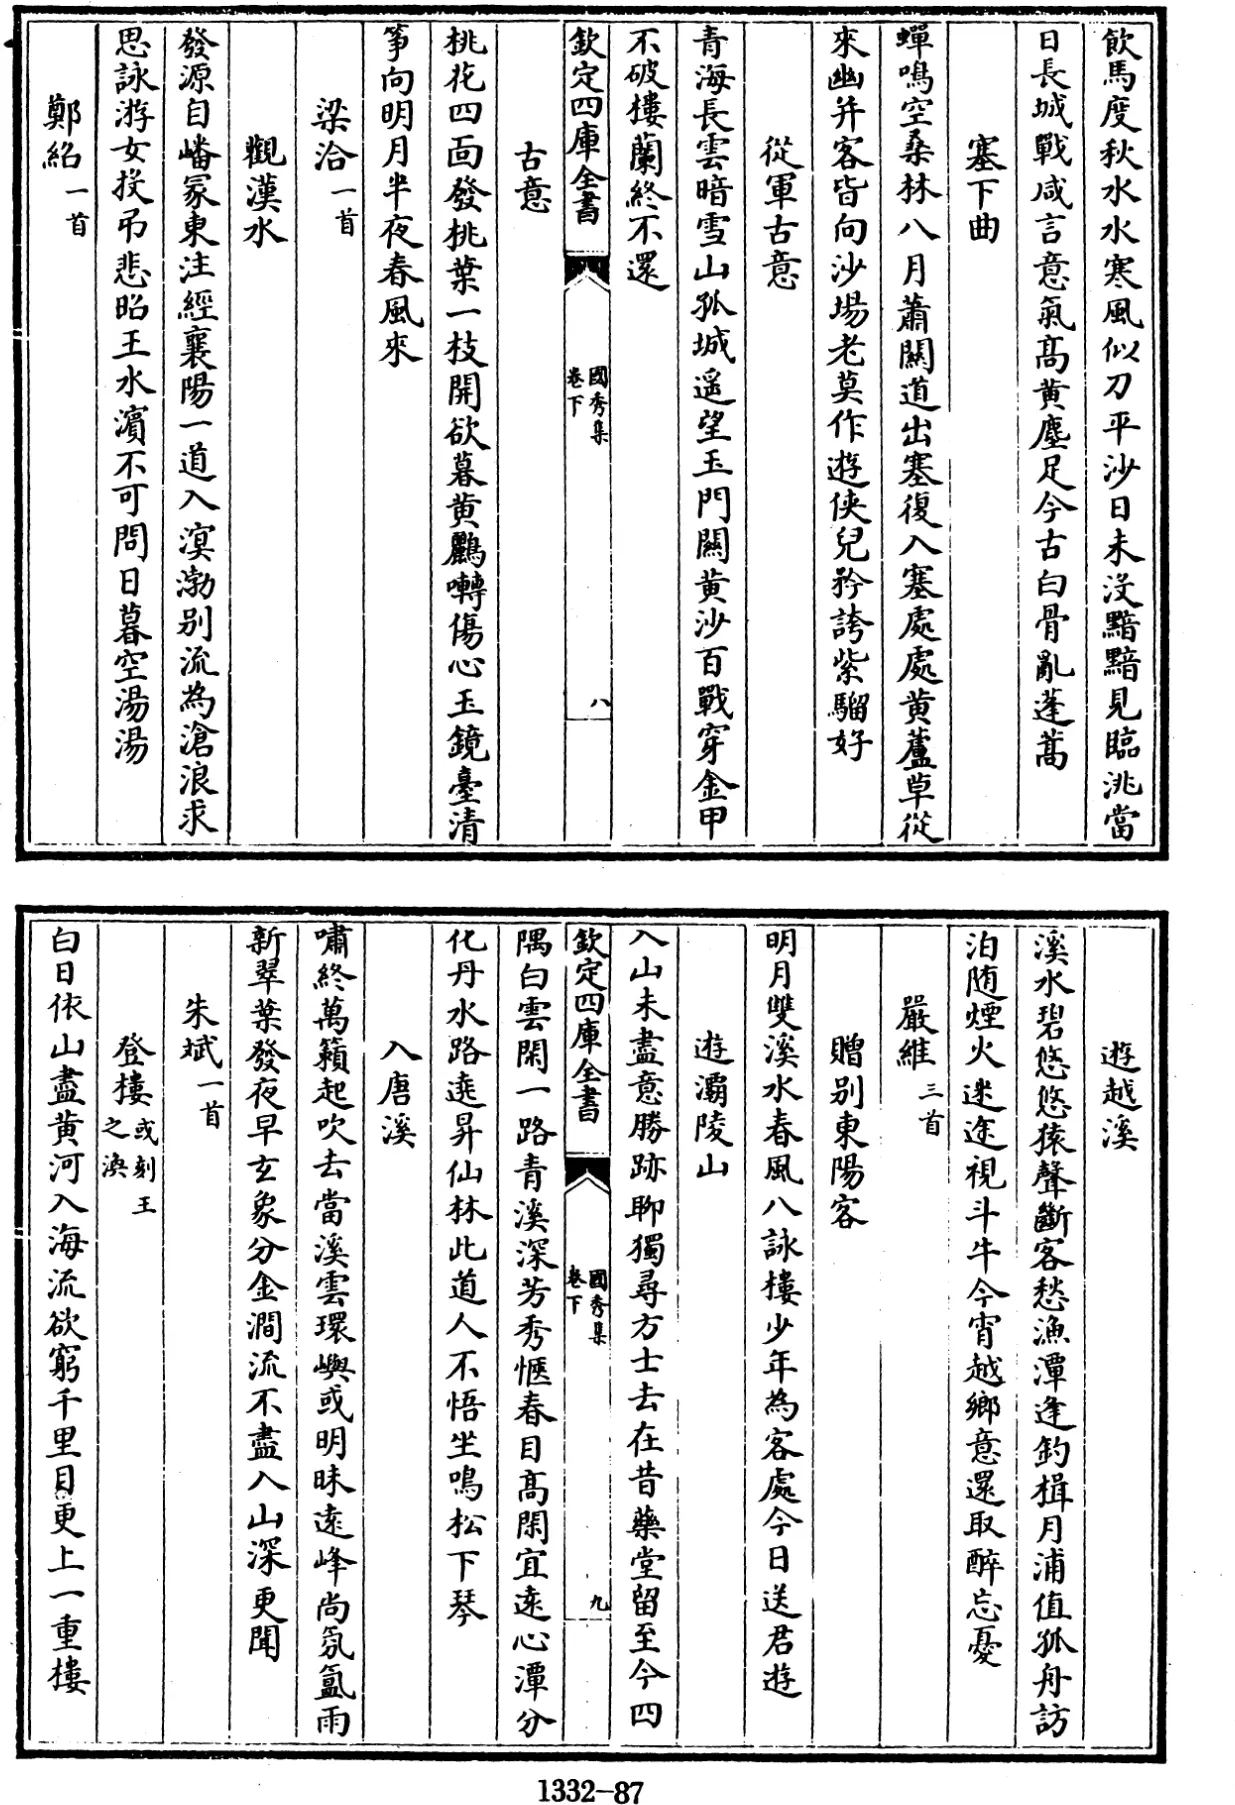 飲馬度秋水水寒風似刀平沙日未没黯黯見臨洮當
日長城戰咸言意氣髙黄塵足今古白骨亂蓬蒿
塞下曲
蟬鳴空桑林八月蕭闗道出塞復入塞處處黄蘆草從
來幽并客皆向沙場老莫作遊俠兒矜誇紫騮好
從軍古意
青海長雲暗雪山孤城遥望玉門闗黄沙百戰穿金甲
不破樓蘭終不還
欽定四庫全書
國秀集
卷下
八
古意
桃花四面發桃葉一枝開欲暮黄鸝囀傷心玉鏡臺清
筝向明月半夜春風來
梁洽一首
觀漢水
發源自嶓冢東注經襄陽一道入溟渤别流為滄浪求
思詠游女投弔悲昭王水濵不可問日暮空湯湯
鄭紹一首
遊越溪
溪水碧悠悠猿聲斷客愁漁潭逢釣楫月浦值孤舟訪
泊随煙火迷途視斗牛今宵越鄉意還取醉忘憂
嚴維三首
贈别東陽客
明月雙溪水春風八詠樓少年為客處今日送君遊
遊灞陵山
入山未盡意勝跡聊獨尋方士去在昔藥堂留至今四
隅白雲閑一路青溪深芳秀愜春目髙閑宜逺心潭分
化丹水路遶昇仙林此道人不悟坐鳴松下琴
欽定四庫全書
國秀集
卷下
九
入唐溪
嘯終萬籟起吹去當溪雲環嶼或明昧逺峰尚氛氲雨
新翠葉發夜早玄象分金澗流不盡入山深更聞
朱斌一首
登樓或刻王之渙
白日依山盡黄河入海流欲窮千里目更上一重樓
1332-87